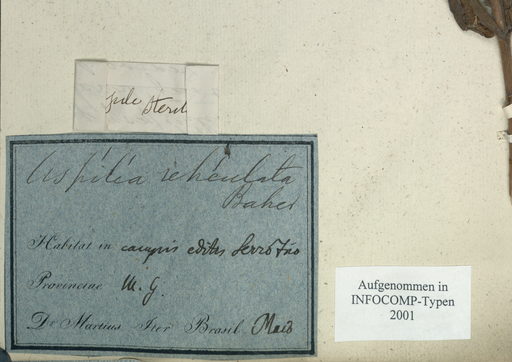 Aspilia reticulata
Baker
Habitat in campis editis Serro frio
Provinciae M. G.
Dr Martius Iter Brasil Maio
Aufgenommen in
INFOCOMP-Typen
2001